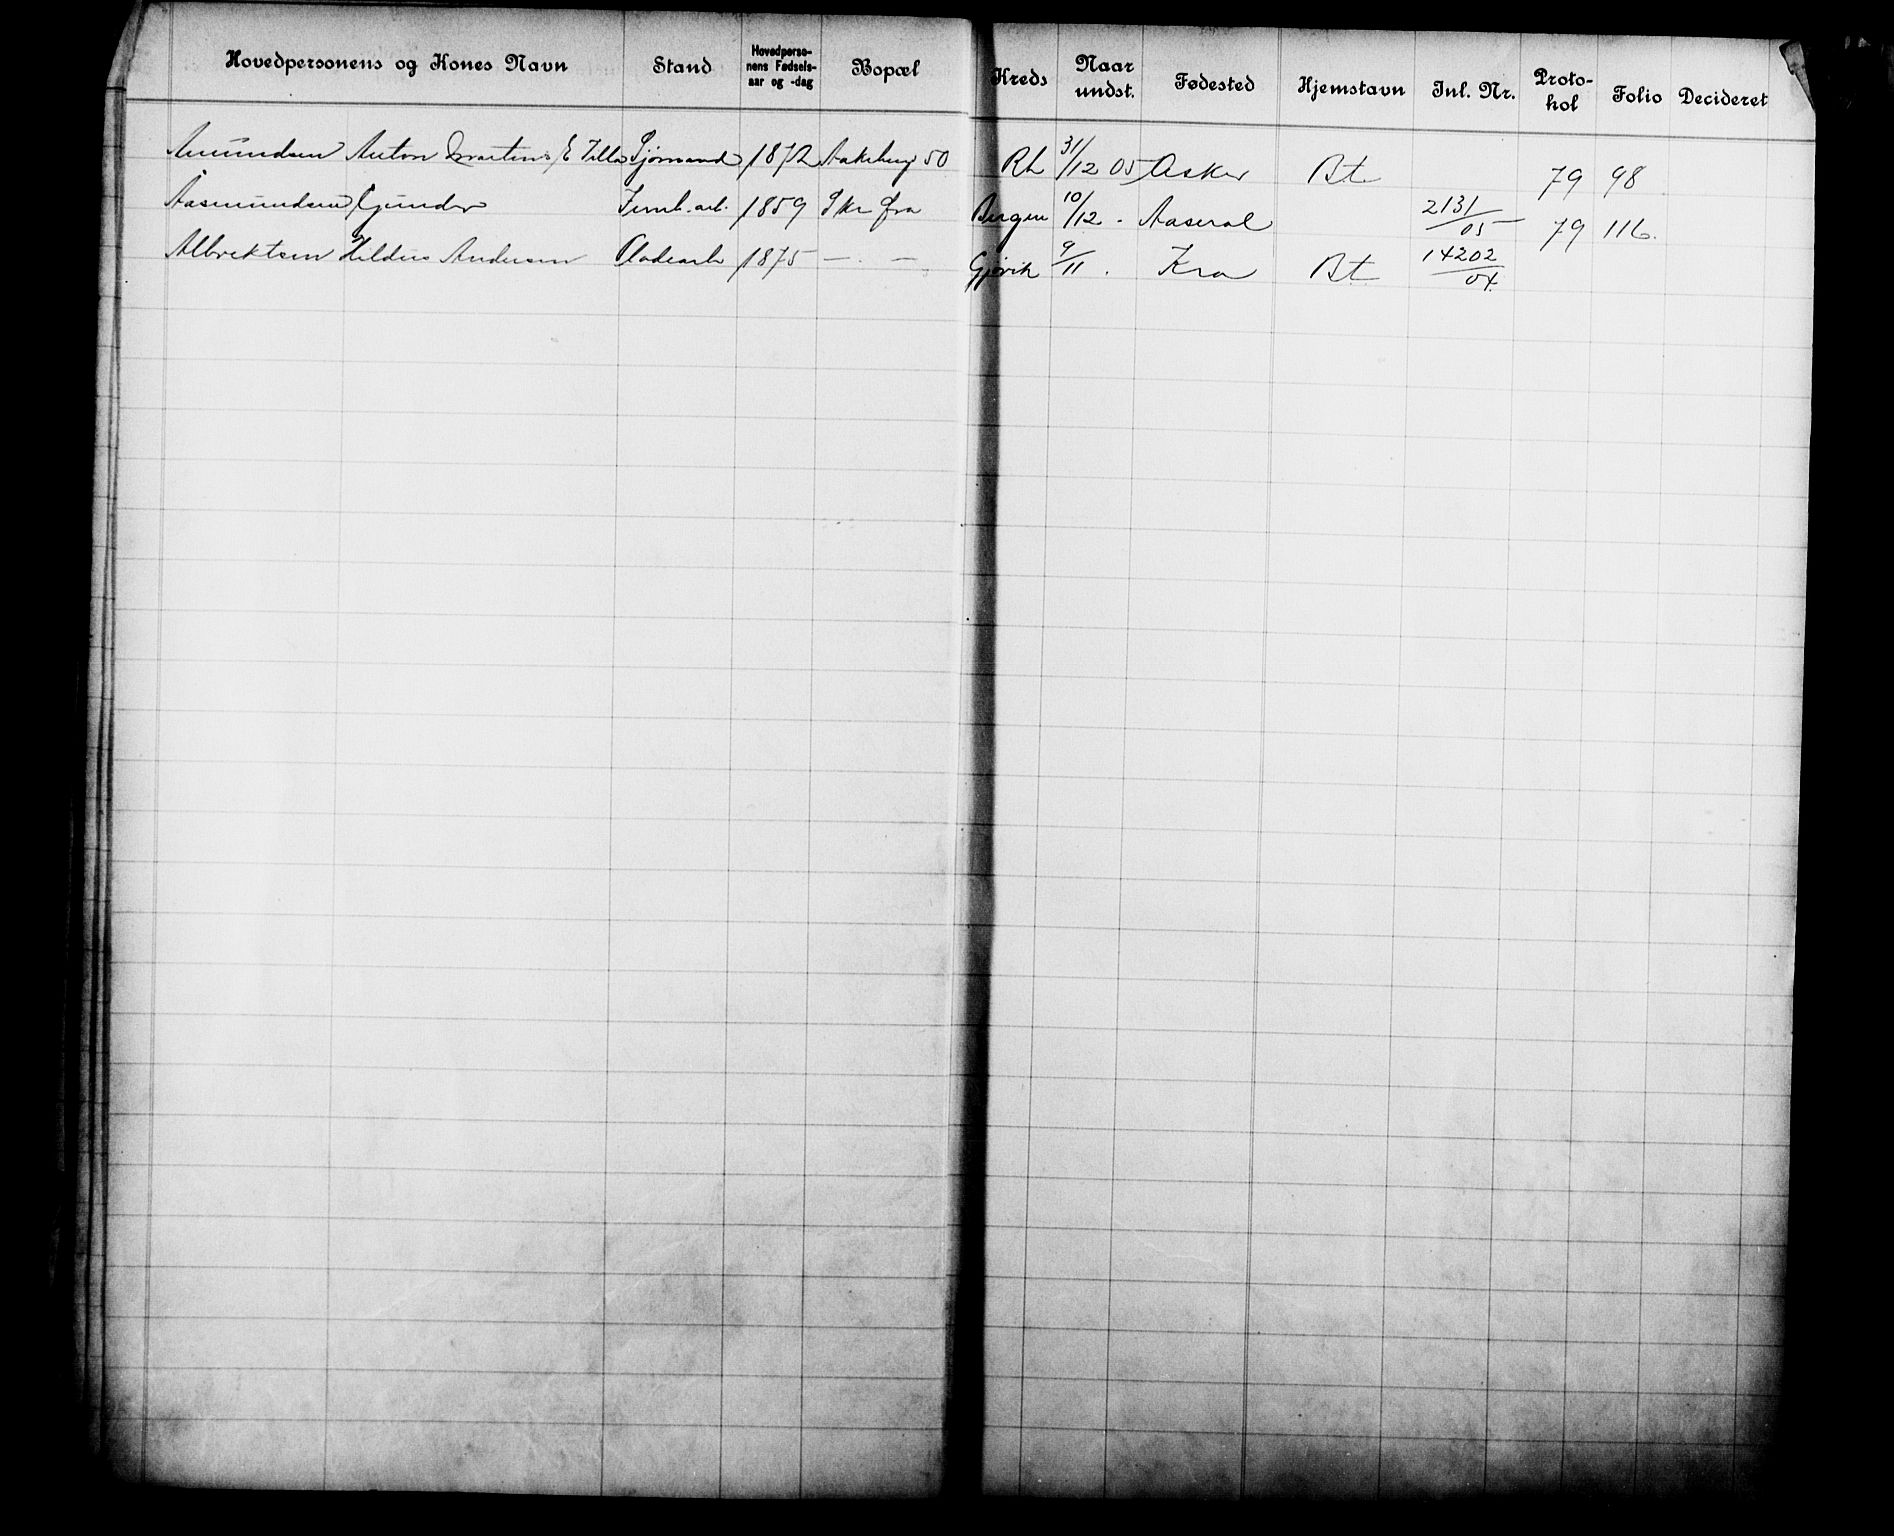 Hovedpersonens og Kones Navn Stand Hovedperso-nens Fødsels-aar og -dag Bopæl Kreds Naar undst. Fødested Hjemstavn Inl. Nr. Proto-kol Folio Decideret
Amundsen Anton Martin E Tilla Sjømand 1872 Aakebergv 50 Rh 31/12 05 Asker Bt 79 98
Aasmundsen Gunder Jernb. arb. 1859 I Kr fra Bergen 10/12 - Aaseral 2131/05 79 116.
Albrektsen Andersen 1875 — . — Gjøvik 9/11 . Kra Bt 14202/04.